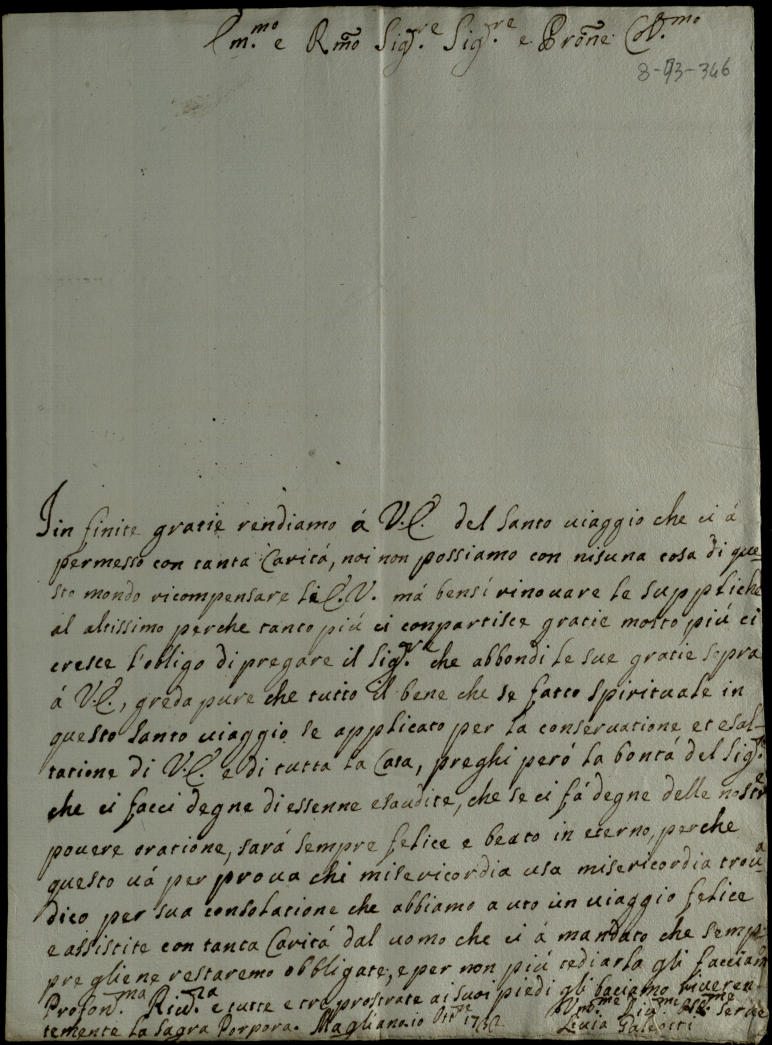 Em.mo e Rmo Sig.re Sig.re e Prone Col.mo
8-93-346
Jin finite gratie rendiamo á V.E. del Santo uiaggio che ci á
permesso con tanta Caritá, noi non possiamo con nisuna cosa di que
sto mondo ricompensare le E.V. má bensi rinouare le Suppliche
al altissimo perche tanto piú ci conpartisce gratie molto piú ci
cresce l'obligo di pregare il Sig.re che abbondi le sue gratie sopra
á V.E., greda pure che tutto il bene che se fatto Spirituale in
questo Santo uiaggio se applicato per la conseruatione et esal-
tatione di V.E. e di tutta la Casa, preghi peró la bontá del Sig.re
che ci facci degne di essenne esaudite, che se ci fá degne delle nostre
pouere oratione, sará sempre felice e beato in eterno, perche
questo uá per proua chi misericordia usa misericordia troua
dico per sua consolatione che abbiamo auto ún uiaggio felice
e assistite con tanta Caritá dal uomo che ci á mandato che semp
pre gliene restaremo obbligate, e per non piú tediarla gli facciamo
Profon.ma Riu.za e tutte e tre prostrate ai suoi piedi gli baciamo riueren
temente la Sagra Porpora. Magliano io Ott.re 1732
Serue
Liuia Galeotti